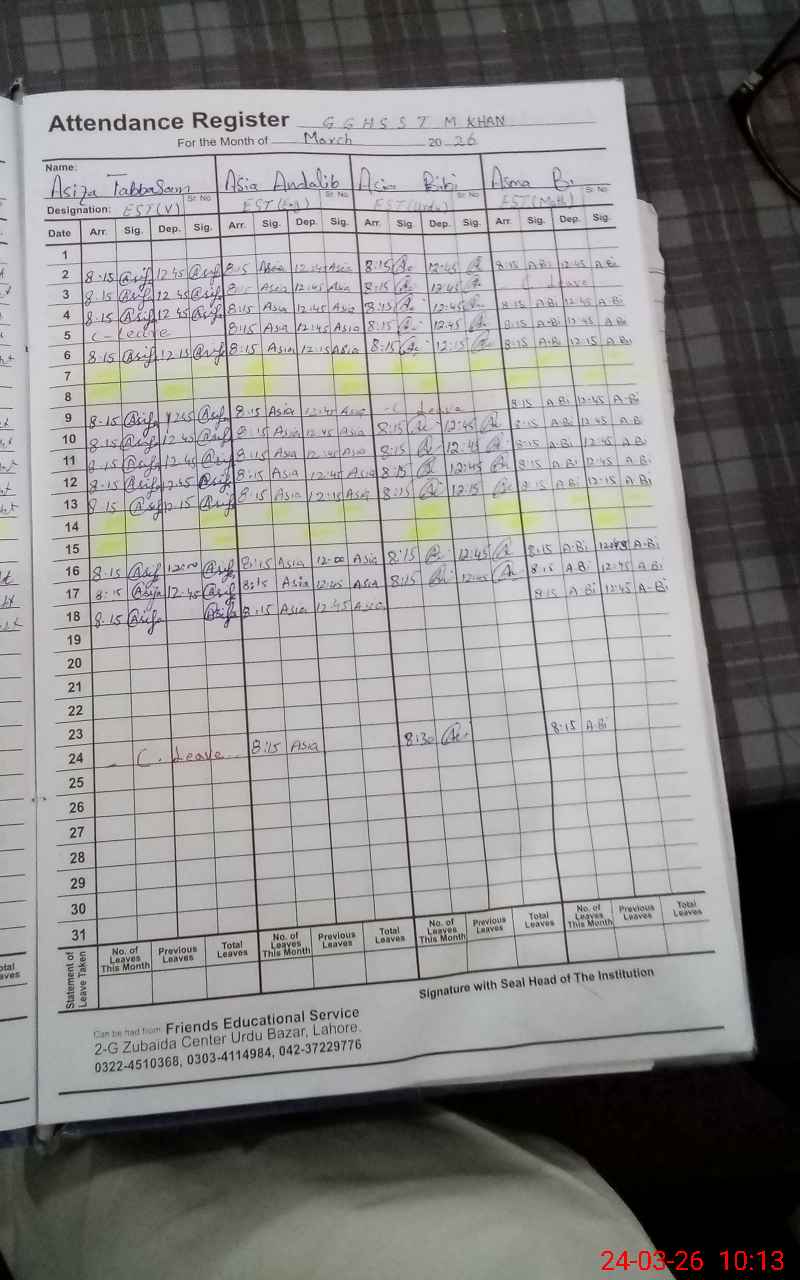 Attendance Register GGHSS T M KHAN
For the Month of March 2026
Name: Asia Andalib Asia Bibi Asma Bi
Sr. No Sr. No Sr. No Sr. No
Designation: EST(V) EST(Eng) EST(Urdu) EST(Math)
Date Arr. Sig. Dep. Sig. Arr. Sig. Dep. Sig. Arr. Sig. Dep. Sig. Arr. Sig. Dep. Sig.
1
2 8:15 12 45 8:15 Asia 12:45 Asia 8:15 12:45 8:15 A.Bi 12:45 A.Bi
3 8:15 12 45 8:15 Asia 12:45 Asia 8:15 12:45 C Leave
4 8:15 12 45 8:15 Asia 12:45 Asia 8:15 12:45 8:15 A.Bi 12:45 A.Bi
5 C-Leave 8:15 Asia 12:45 Asia 8:15 12:45 8:15 A.Bi 12:45 A.Bi
6 8:15 12 15 8:15 Asia 12:15 Asia 8:15 12:15 8:15 A.Bi 12:15 A.Bi
7
8
9 8:15 12 45 8:15 Asia 12:45 Asia C Leave 8:15 A.Bi 12:45 A.Bi
10 8:15 12 45 8:15 Asia 12:45 Asia 8:15 12:45 8:15 A.Bi 12:45 A.Bi
11 8:15 12 45 8:15 Asia 12:45 Asia 8:15 12:45 8:15 A.Bi 12:45 A.Bi
12 8:15 12 45 8:15 Asia 12:45 Asia 8:15 12:45 8:15 A.Bi 12:45 A.Bi
13 8:15 12 15 8:15 Asia 12:15 Asia 8:15 12:15 8:15 A.Bi 12:15 A.Bi
14
15
16 8:15 12:00 8:15 Asia 12:00 Asia 8:15 12:45 8:15 A.Bi 12:45 A.Bi
17 8:15 12:45 8:15 Asia 12:45 Asia 8:15 12:45 8:15 A.Bi 12:45 A.Bi
18 8:15 8:15 Asia 12:45 Asia 8:15 A.Bi 12:45 A-Bi
19
20
21
22
23
24 C. Leave 8:15 Asia 8:30 8:15 A.Bi
25
26
27
28
29
30
31
Statement of Leave Taken
No. of Leaves This Month Previous Leaves Total Leaves No. of Leaves This Month Previous Leaves Total Leaves No. of Leaves This Month Previous Leaves Total Leaves No. of Leaves This Month Previous Leaves Total Leaves
Signature with Seal Head of The Institution
Can be had from: Friends Educational Service
2-G Zubaida Center Urdu Bazar, Lahore.
0322-4510368, 0303-4114984, 042-37229776
24-03-26 10:13